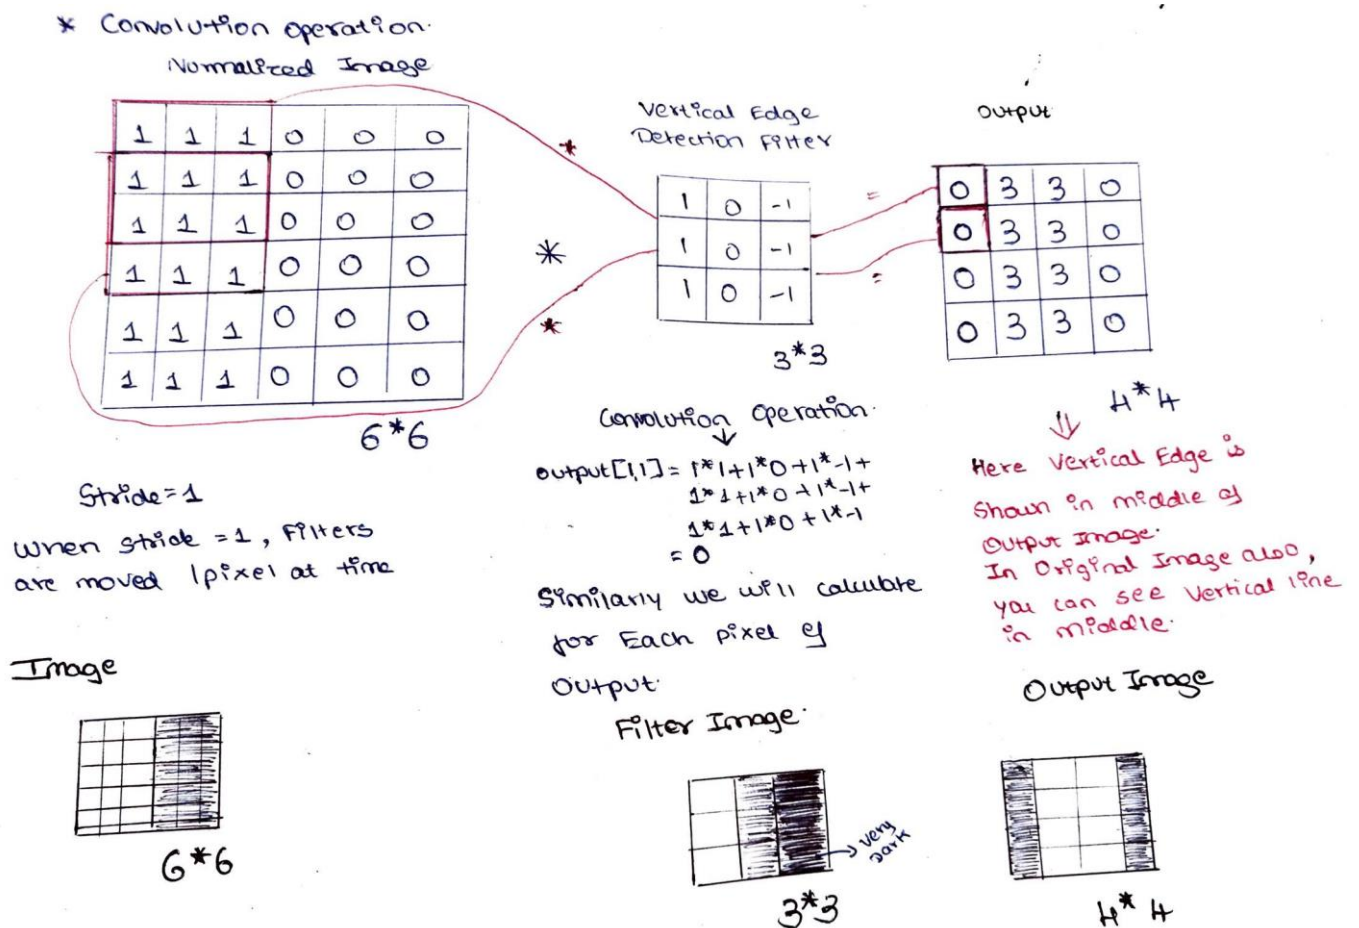 * Convolution operation.
Normalized Image
1 1 1 0 0 0
1 1 1 0 0 0
1 1 1 0 0 0
1 1 1 0 0 0
1 1 1 0 0 0
1 1 1 0 0 0
6*6
*
*
*
Vertical Edge
Detection Filter
1 0 -1
1 0 -1
1 0 -1
3*3
=
=
Output
0 3 3 0
0 3 3 0
0 3 3 0
0 3 3 0
4*4
Stride=1
When stride =1, Filters
are moved 1pixel at time
Convolution operation.
↓
output[1,1] = 1*1+1*0+1*-1+
1*1+1*0+1*-1+
1*1+1*0+1*-1
= 0
Similarly we will calculate
for Each pixel of
Output.
⇓
Here Vertical Edge is
Shown in middle of
Output Image.
In Original Image also,
you can see Vertical line
in middle.
Image
6*6
Filter Image.
→ very
Dark
3*3
Output Image
4*4